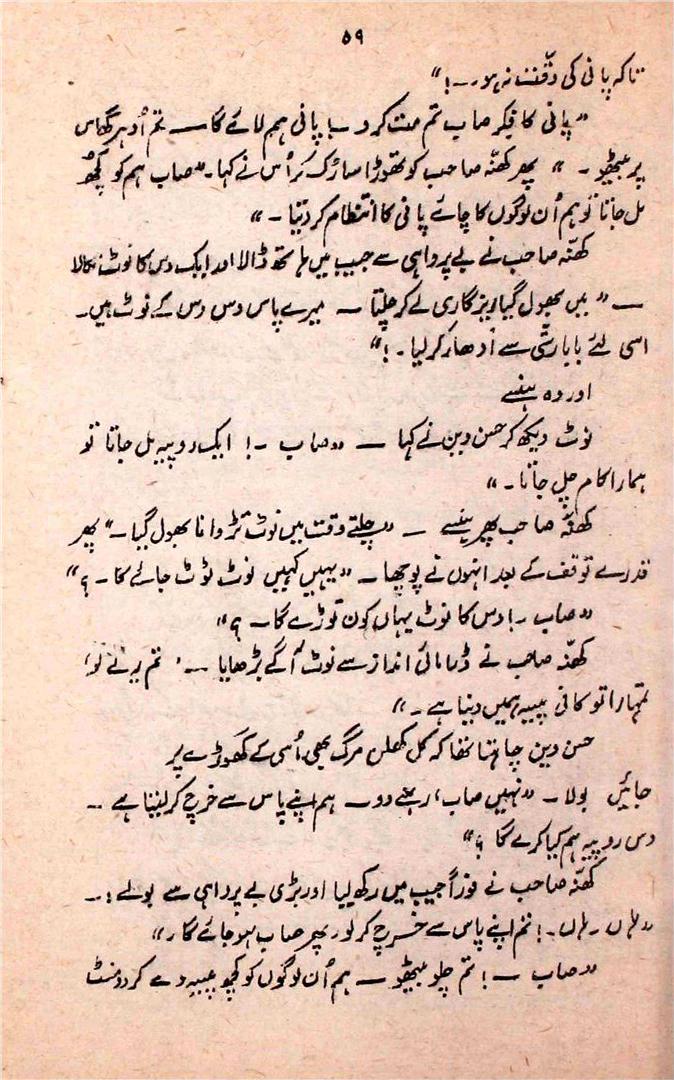 ۵۹
تاکہ پانی کی دقّت نہ ہو۔ ــ !"
"پانی کا فکر صاب تم مت کرو ۔ سبا پانی ہم لائے گا ــ تم اُدہر گھاس
پر بیٹھو ۔ " پھر کھنّہ صاحب کو تھوڑا سا رُک کر اُس نے کہا۔ "صاب ہم کو کچھ
مل جاتا تو ہم اُن لوگوں کا چائے پانی کا انتظام کر دیتا ۔"
کھنّہ صاحب نے بے پرواہی سے جیب میں ہاتھ ڈالا اور ایک دس کا نوٹ نکالا
ــ "میں بھول گیا ریزگاری لے کر چلتا ــ میرے پاس دس دس کے نوٹ ہیں۔
اسی لئے بابا رشّی سے اُدھار کر لیا ۔ !"
اور وہ ہنسے
نوٹ دیکھ کر حسن دین نے کہا ــ "صاب ۔! ایک روپیہ مل جاتا تو
ہمارا کام چل جاتا ۔"
کھنّہ صاحب پھر ہنسے ــ "چلتے وقت میں نوٹ تڑوانا بھول گیا ۔" پھر
قدرے توقف کے بعد انہوں نے پوچھا ــ "یہیں کہیں نوٹ ٹوٹ جائے گا ۔ ؟"
"صاب ۔! دس کا نوٹ یہاں کون توڑے گا ۔ ؟"
کھنّہ صاحب نے ڈرامائی انداز سے نوٹ آگے بڑھایا ــ ' تم یہ لے لو!
تمہارا تو کافی پیسہ ہمیں دینا ہے ۔"
حسن دین چاہتا تھا کہ کل کھلن مرگ بھی اُسی کے گھوڑے پر
جائیں بولا ۔ "نہیں صاب، رہنے دو ــ ہم اپنے پاس سے خرچ کر لیتا ہے ــ
دس روپیہ ہم کیا کرے گا ؟"
کھنّہ صاحب نے فوراً جیب میں رکھ لیا اور بڑی بے پرواہی سے بولے : ــ
"ہاں ۔ ہاں ۔! تم اپنے پاس سے خرچ کر لو۔ پھر حساب ہو جائے گا ۔"
"صاب ــ ! تم چلو بیٹھو ــ ہم اُن لوگوں کو کچھ پیسہ دے کر دو منٹ